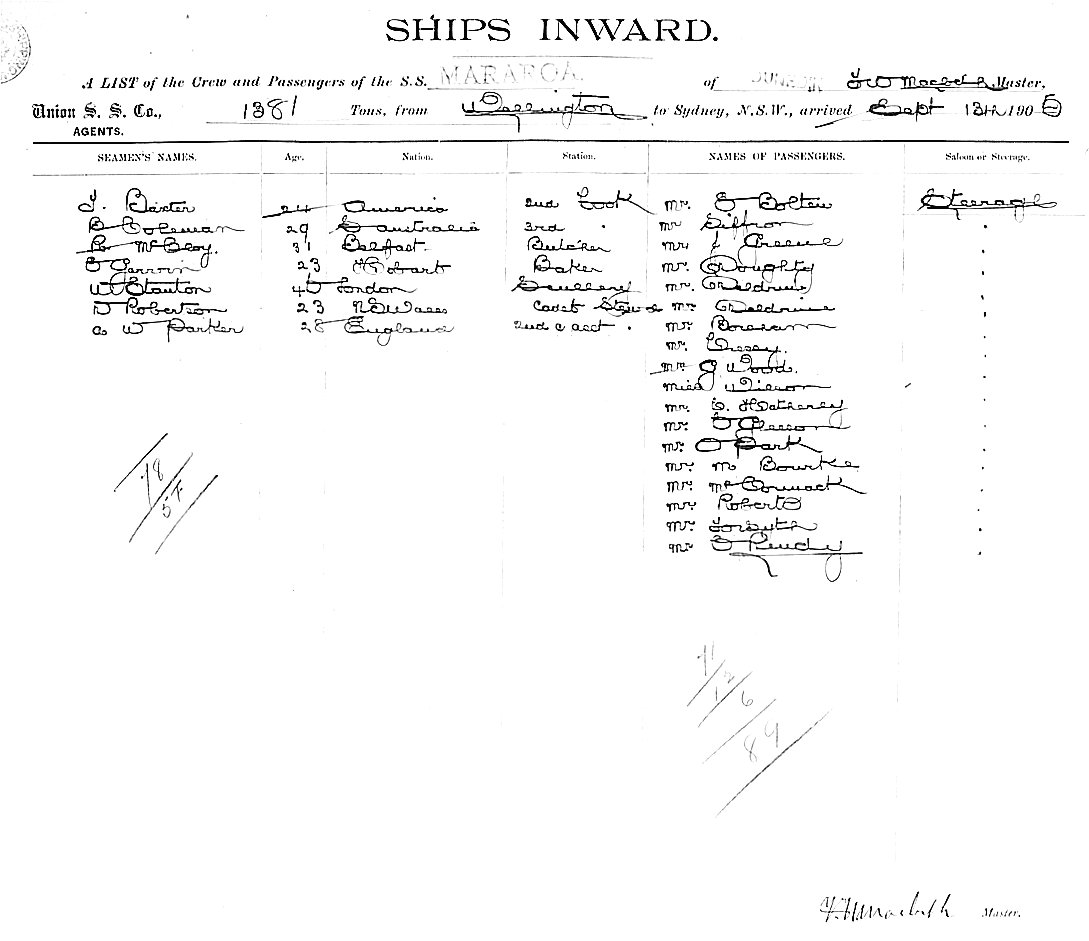 SHIPS INWARD.
A LIST of the Crew and Passengers of the S.S. MARAROA. of DUNEDIN Macbeth Master,
Union S. S. Co., 1381 Tons, from Wellington to Sydney, N.S.W., arrived Sept 13th 190
AGENTS.
SEAMEN'S NAMES. Age. Nation. Station. NAMES OF PASSENGERS. Saloon or Steerage.
J. Baxter 24 America 2nd Cook Mr. E Bolton Steerage
B Coleman 29 S Australia 3rd " Mr Siffron "
McCloy. 31 Belfast. Butcher Mr J Greene "
23 Hobart Baker Mr. Doughty "
W Stanton London Scullery Mr.
D Robertson 23 N S Wales Cadet Stewd Mr.
C W Parker 28 England 2nd c asst. Mr. Boreham
Mr.
Mr J Wood.
Miss Wilson
Mr. E. Hatherley
Mr. Gleeson
Mr. O Park
Mr. M Bourke
Mr. McCormack
Mr Roberts
Mr. Forsyth
Mr
18
57
71
12
6
89
Macbeth Master.